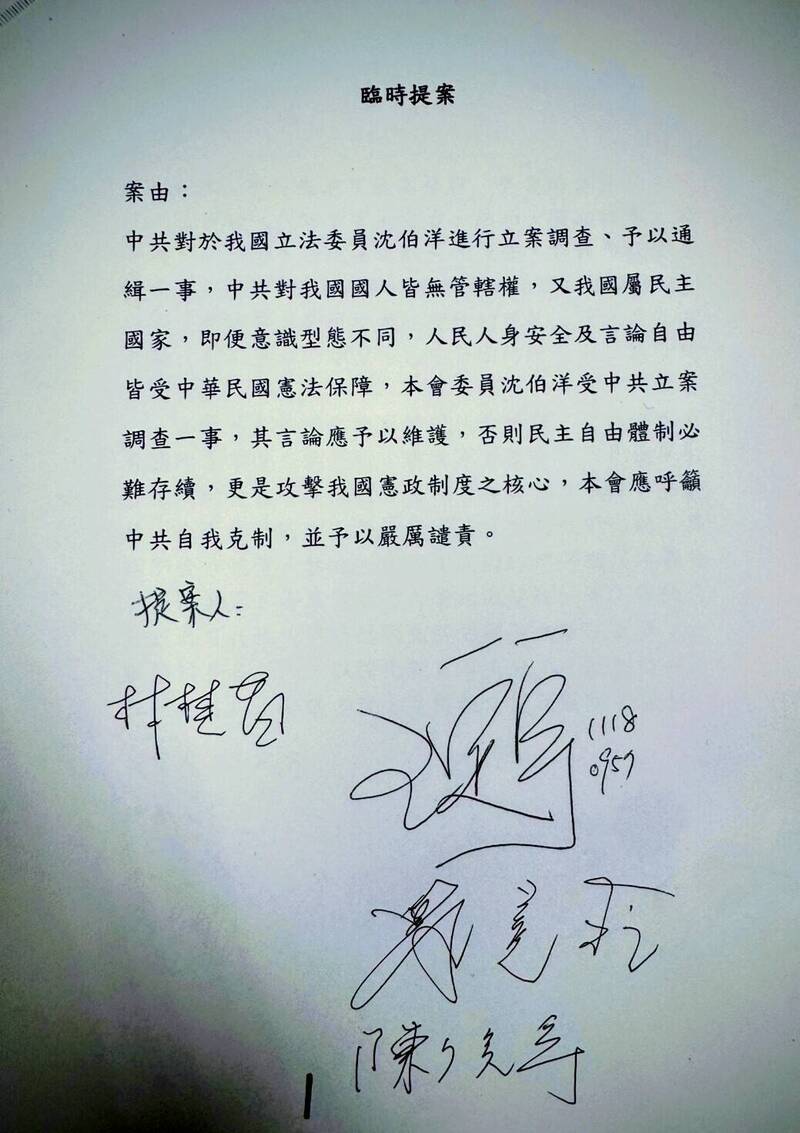 臨時提案
案由：
中共對於我國立法委員沈伯洋進行立案調查、予以通
緝一事，中共對我國國人皆無管轄權，又我國屬民主
國家，即便意識型態不同，人民人身安全及言論自由
皆受中華民國憲法保障，本會委員沈伯洋受中共立案
調查一事，其言論應予以維護，否則民主自由體制必
難存續，更是攻擊我國憲政制度之核心，本會應呼籲
中共自我克制，並予以嚴厲譴責。
提案人：
1118
0957